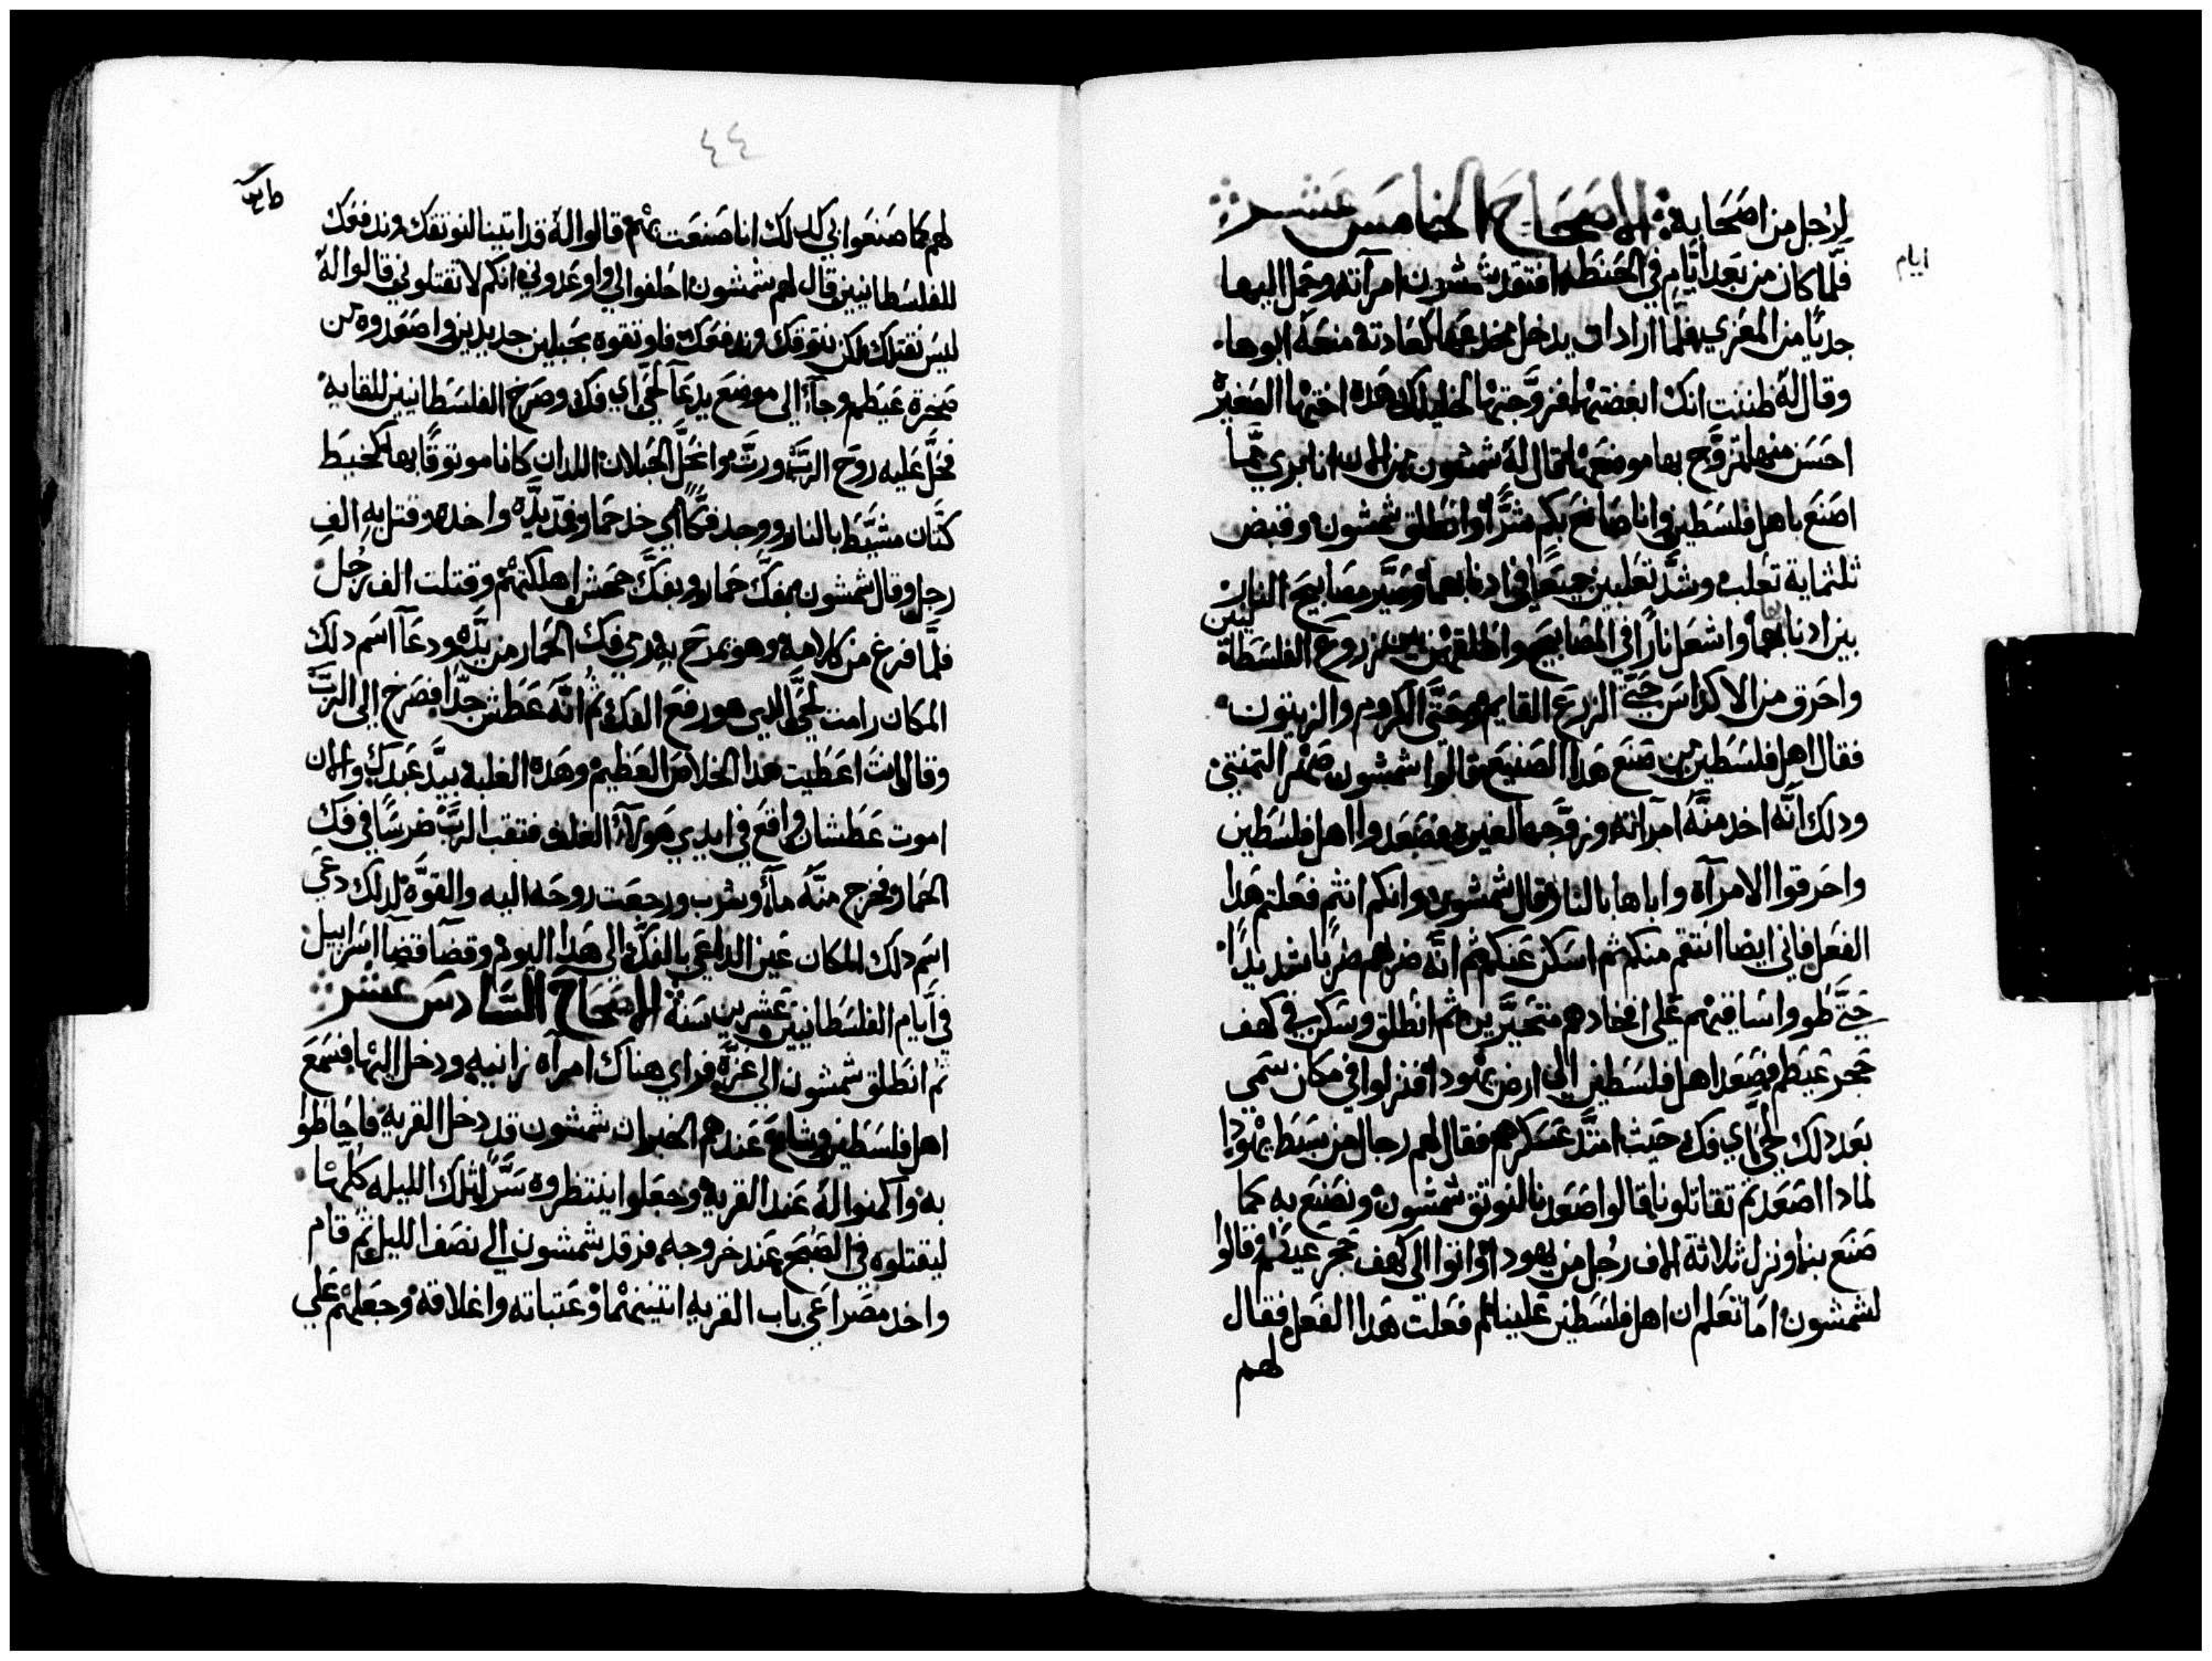 لرجل من اصحابه الاصحاح الخامس عشر
ايام
فلما كان من بعد ايام في الحنطه افتقد شمشون امرآته وحمل اليها
جديًا من المعزي فلما اراد ان يدخل مخدعها كعادته منعه ابوها
وقال له ظننت انك ابغضتها فزوجتها لخليلك هده اختها الصغيره
احسن منها تزوج بها موضعها فقال له شمشون من الان انا بري مما
اصنع باهل فلسطين وانا صانع بكم شرًا وانطلق شمشون وقبض
ثلثماية تعلب وشد تعلبين جميعًا في ادنابهما وصير مصابيح النار
بين ادنابهما واشعل نارًا في المصابيح واطلقهن بين زروع الفلسطانيين
واحرق من الاكداس حتى الزرع القايم وحتى الكروم والزيتون
فقال اهل فلسطين من صنع هدا الصنيع فقالوا شمشون صهر التمنتي
ودلك انه اخد منه امراته وزوجها لغيره فصعدوا اهل فلسطين
واحرقوا الامرآة واباها بالنار وقال شمشون وانكم انتم فعلتم هدا
الفعل فاني ايضا انتقم منكم ثم اسكن عنكم ثم انه ضربهم ضربا شديدًا
حتى طووا اساقيهم على افخادهم متحيرين ثم انطلق وسكن في كهف
حجر عيطم فصعد اهل فلسطين الى ارض يهودا فنزلوا في مكان سمي
بعد دلك لحي اي فك حيث امتد عسكرهم فقال لهم رجال من سبط يهودا
لمادا اصعدتم تقاتلونا قالوا صعدنا لنوتق شمشون ونصنع به كما
صنع بنا ونزل ثلاتة الاف رجل من يهودا واتوا الى كهف حجر عيطم وقالوا
لشمشون اما تعلم ان اهل فلسطين علينا لم فعلت هدا الفعل فقال
لهم
٤٤
لهم كما صنعوا بي كدلك انا صنعت بهم قالوا له قد اتينا لنوتقك وندفعك
للفلسطانيين قال لهم شمشون احلفوا لي واوعدوني انكم لا تقتلوني قالوا له
ليس نقتلك لكن نوتقك وندفعك فاوتقوه بحبلين جديدين واصعدوه من
صخرة عيطم وجآ الى موضع يدعآ لحي اي فك وصرخ الفلسطانيين للقايه
فحل عليه روح الرب ورت وانحل الحبلان اللدان كانا موتوقًا بهما كخيط
كتان مشيط بالنار ووجد فكًا اي خد حمار فمد يده واخده وقتل به الف
رجل وقال شمشون بفك حمار وبفك جحش اهلكتهم وقتلت الف رجل
فلما فرغ من كلامه وهو يمدح به رمي فك الحمار من يده ودعآ اسم دلك
المكان رامت لحي الدي هو رفع الفك ثم انه عطش جدًا فصرخ الى الرب
وقال انت اعطيت هدا الخلاص العظيم وهده الغلبة بيد عبدك والان
اموت عطشان واقع في ايدي هولآء الغلف فتقب الرب ضرسًا في فك
الحمار وخرج منه مآء وشرب ورجعت روحه اليه والقوه لدلك دعي
اسم دلك المكان عين الداعي بالفك الى هدا اليوم وقضآ قضآ اسراييل
في ايام الفلسطانيين عشرين سنة الاصحاح السادس عشر
ثم انطلق شمشون الى غزة فراي هناك امرآه زانيه ودخل اليها فسمع
اهل فلسطين وشاع عندهم الخبر ان شمشون قد دخل القريه فاحاطوا
به واكمنوا له عند القريه وجعلوا ينتظروه سرًا تلك الليله كلها
ليقتلوه في الصبح عند خروجه فرقد شمشون الى نصف الليل ثم قام
واخد مصراعي باب القريه اتنينهما وعتباته واغلاقه وجعلهم علي